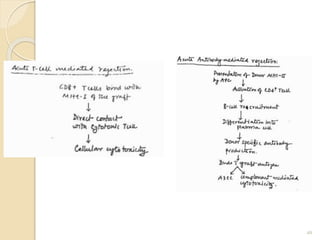 Acute T-cell mediated rejection.
CD8+ T cells bind with
MHC-I of the graft
Direct contact
with Cytotoxic T cell
Cellular cytotoxicity
Acute Antibody mediated rejection:
Presentation of Donor MHC-II
by APC
Activation of CD4+ T cell
B-cell recruitment
Differentiation into
plasma cell
Donor specific antibody
production.
Binds graft antigen
ADCC complement mediated
cytotoxicity.